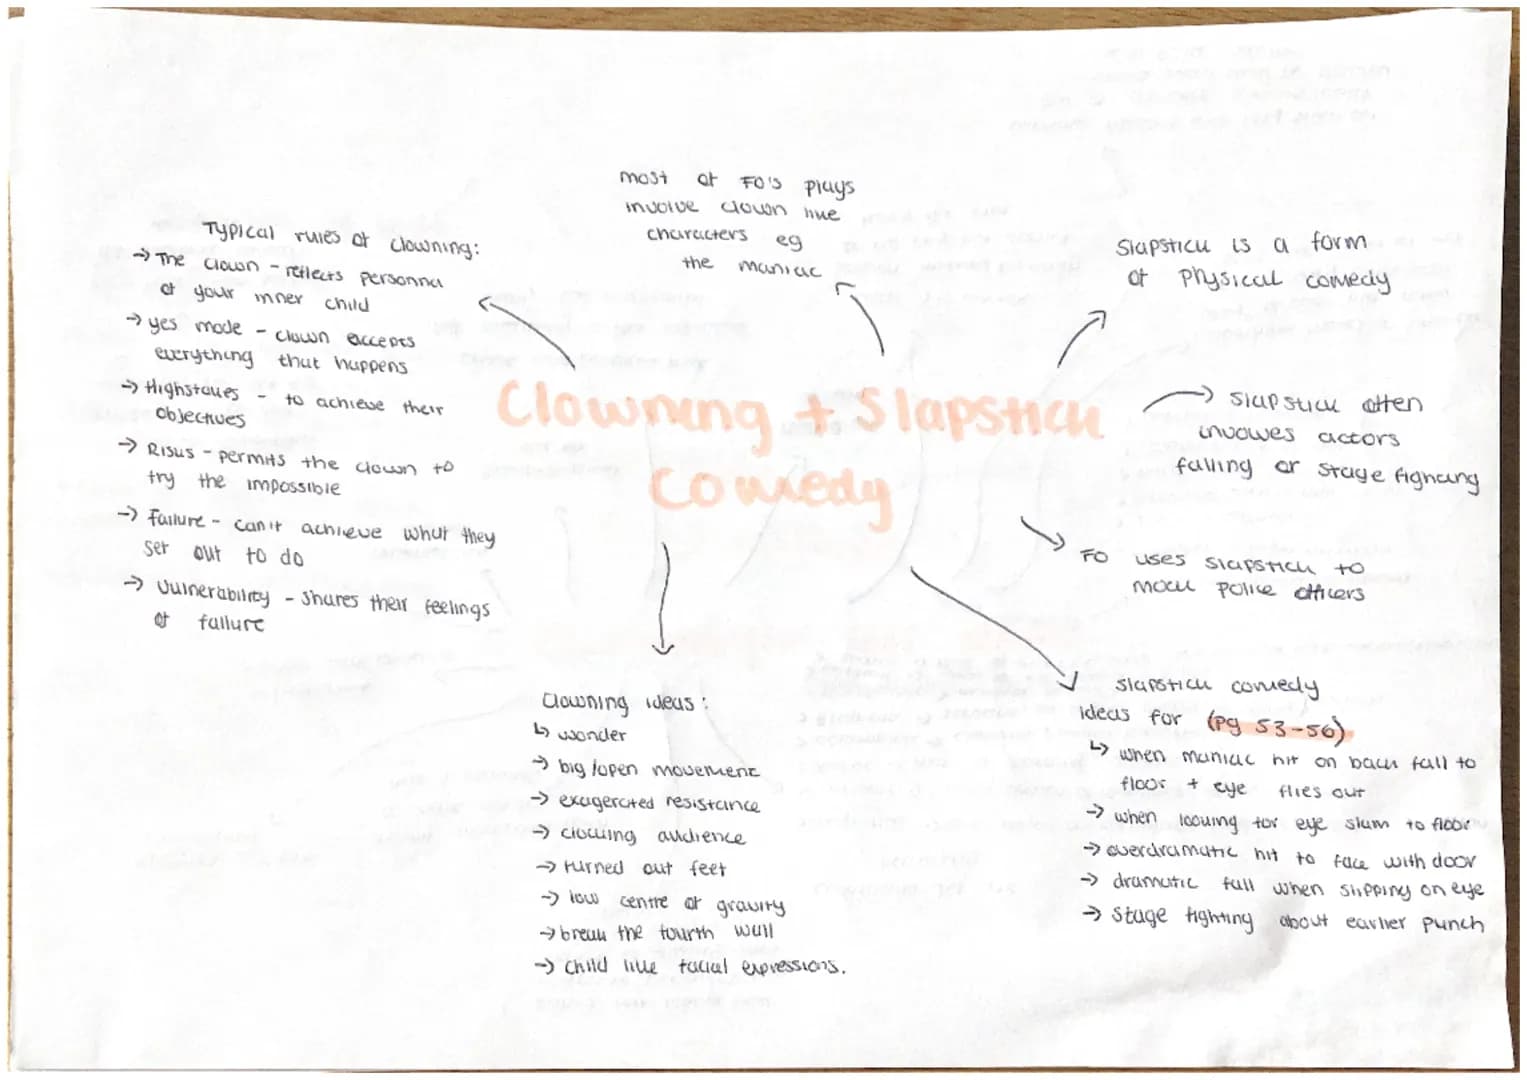 Clowning + Slapstick
Comedy
Typical rules of clowning:
→ The clown - reflects personna
of your inner child
→ yes mode - clown accepts
everything that happens
→ Highstakes - to achieve their
objectives
→ Risks - permits the clown to
try the impossible
→ Failure - can't achieve what they
set out to do
→ Vulnerability - shares their feelings
of failure
most of FO's plays
involve clown like
characters eg
the maniac
Slapstick is a form
of physical comedy
Slapstick often
involves actors
falling or stage fighting
FO uses slapstick to
mock police officers
Clowning ideas:
↳ wonder
→ big/open movement
→ exagerated resistance
→ clocking audience
→ turned out feet
→ low centre of gravity
→ break the fourth wall
→ child like facial expressions.
Slapstick comedy
ideas for (pg 53-56)
↳ when maniac hit on back fall to
floor + eye flies out
→ when looking for eye slam to floor
→ overdramatic hit to face with door
→ dramatic fall when slipping on eye
→ stage fighting about earlier punch